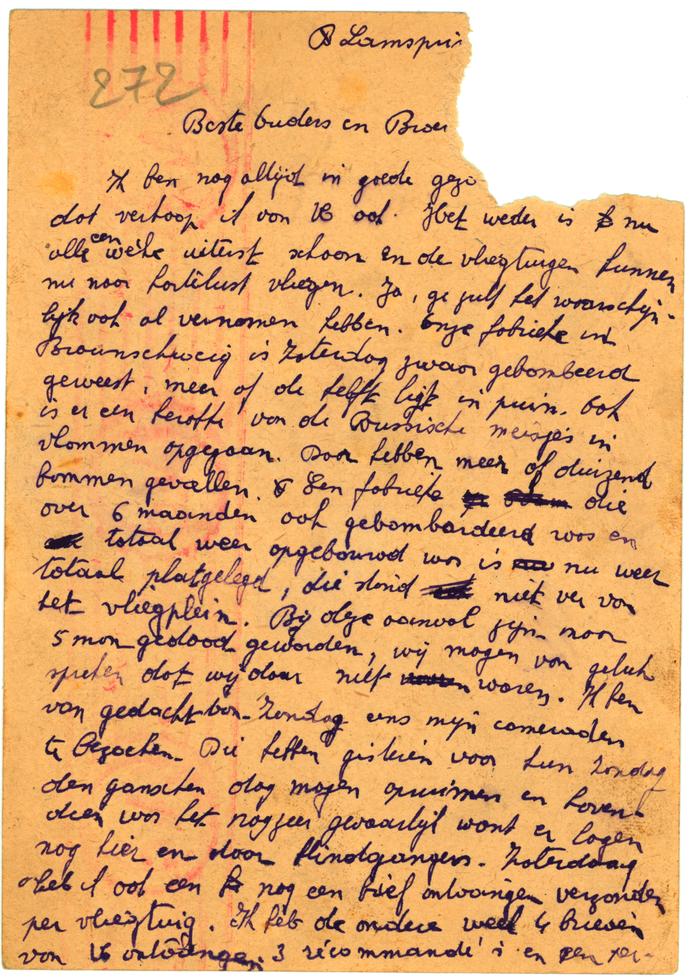 272
Lamspri
Beste Ouders en Broe
Ik ben nog altijd in goede gezo
dat verhoop ik van U ook. Het weder is nu
alle een weke uiterst schoon en de vliegtuigen kunnen
nu naar hartelust vliegen. Ja, ge zult het waarschijn-
lijk ook al vernomen hebben. Onze fabrieke in
Braunschweig is Zaterdag zwaar gebombeerd
geweest, meer of de helft ligt in puin. Ook
is er een barakke van de Russische meisjes in
vlammen opgegaan. Daar hebben meer of duizend
bommen gevallen. Een fabrieke die
over 6 maanden ook gebombardeerd was en
totaal weer opgebouwd was is nu weer
totaal platgelegd, die stond niet ver van
het vliegplein. Bij deze aanval zijn maar
5 man gedood geworden, wij mogen van geluk
spreken dat wij daar niet waren. Ik ben
van gedacht van Zondag eens mijn cameraden
te bezoeken. Die hebben gisteren voor hun Zondag
den ganschen dag mogen opruimen en boven-
dien was het nog zeer gevaarlijk want er lagen
nog hier en daar blindgangers. Zaterdag
heb ik ook een nog een brief ontvangen verzonden
per vliegtuig. Ik heb de andere week 4 brieven
van U ontvangen. 3 récommandé's en een per-